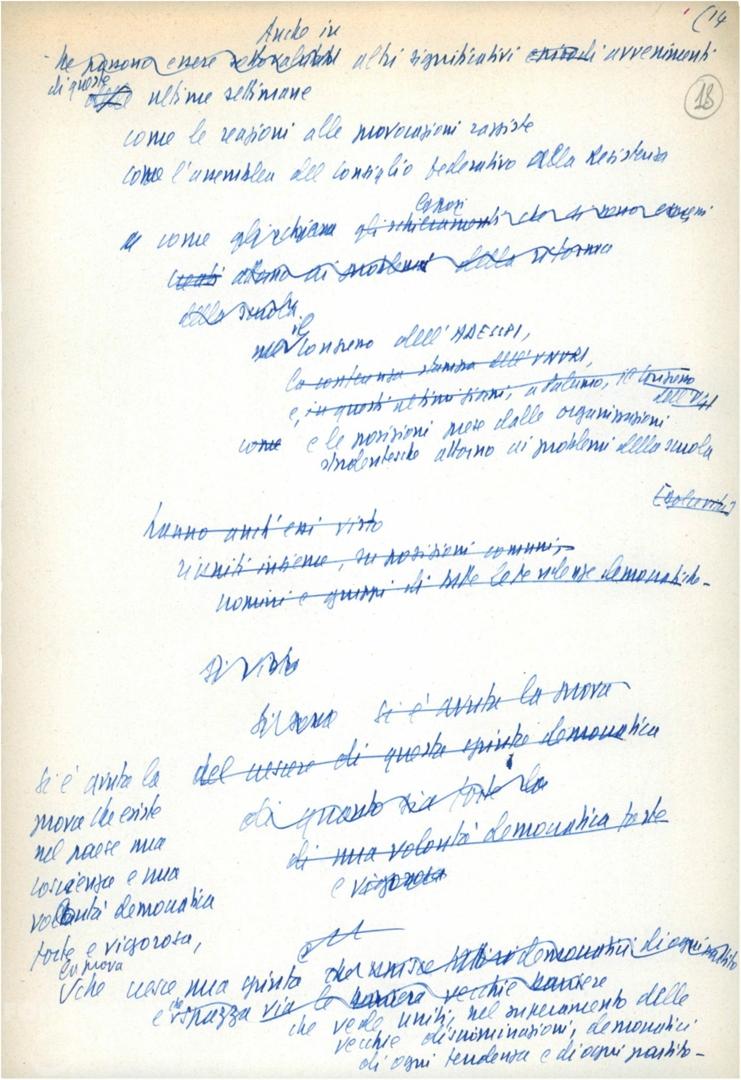 (14
18
Anche in
Ne possono essere sottovalutati altri significativi episodi avvenimenti
di queste
delle ultime settimane
come le reazioni alle provocazioni razziste
come l'assemblea del Consiglio Federativo della Resistenza
e come gli schieramenti che si sono
creati attorno ai problemi della riforma
della scuola.
nel il Congresso dell'ADESSPI,
la conferenza stampa dell'UNURI,
e, in questi ultimi giorni, a Palermo, il Congresso
dell'UGI
come e le posizioni prese dalle organizzazioni
studentesche attorno ai problemi della scuola
hanno anch'essi visto
riuniti insieme, su posizioni comuni,
uomini e gruppi di tutte le tendenze democratiche -
si è visto
si è avuta la prova
del crescere di questo spirito democratico
di quanto sia forte la
di una volontà democratica forte
e vigorosa
si è avuta la
prova che esiste
nel paese una
coscienza e una
volontà democratica
forte e vigorosa,
la prova
che cresce uno spirito che unisce democratici di ogni partito
e che spazza via le barriere vecchie barriere
che vede uniti, nel superamento delle
vecchie discriminazioni, democratici
di ogni tendenza e di ogni partito -